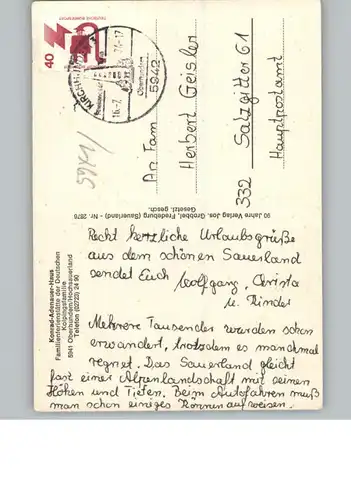 Recht herzliche Urlaubsgrüße
aus dem schönen Sauerland
sendet Euch Wolfgang, Christa
u. Kinder
Mehrere Tausender wurden schon
erwandert, trotzdem es manchmal
regnet. Das Sauerland gleicht
fast einer Alpenlandschaft mit seinen
Höhen und Tiefen. Beim Autofahren muß
man schon einiges Können aufweisen.
Konrad-Adenauer-Haus
Familienferienstätte der Deutschen
Kolpingsfamilie
5941 Oberhundem/Hochsauerland
Telefon (02723) 24 90
90 Jahre Verlag Jos. Grobbel, Fredeburg (Sauerland) - Nr. 2875
Gesetzl. gesch.
DEUTSCHE BUNDESPOST
40
KIRCHHUNDEM
5942
Oberhundem
16.-7. 74-17
An Fam.
Herbert Geisler
332 Salzgitter 61
Hauptpostamt